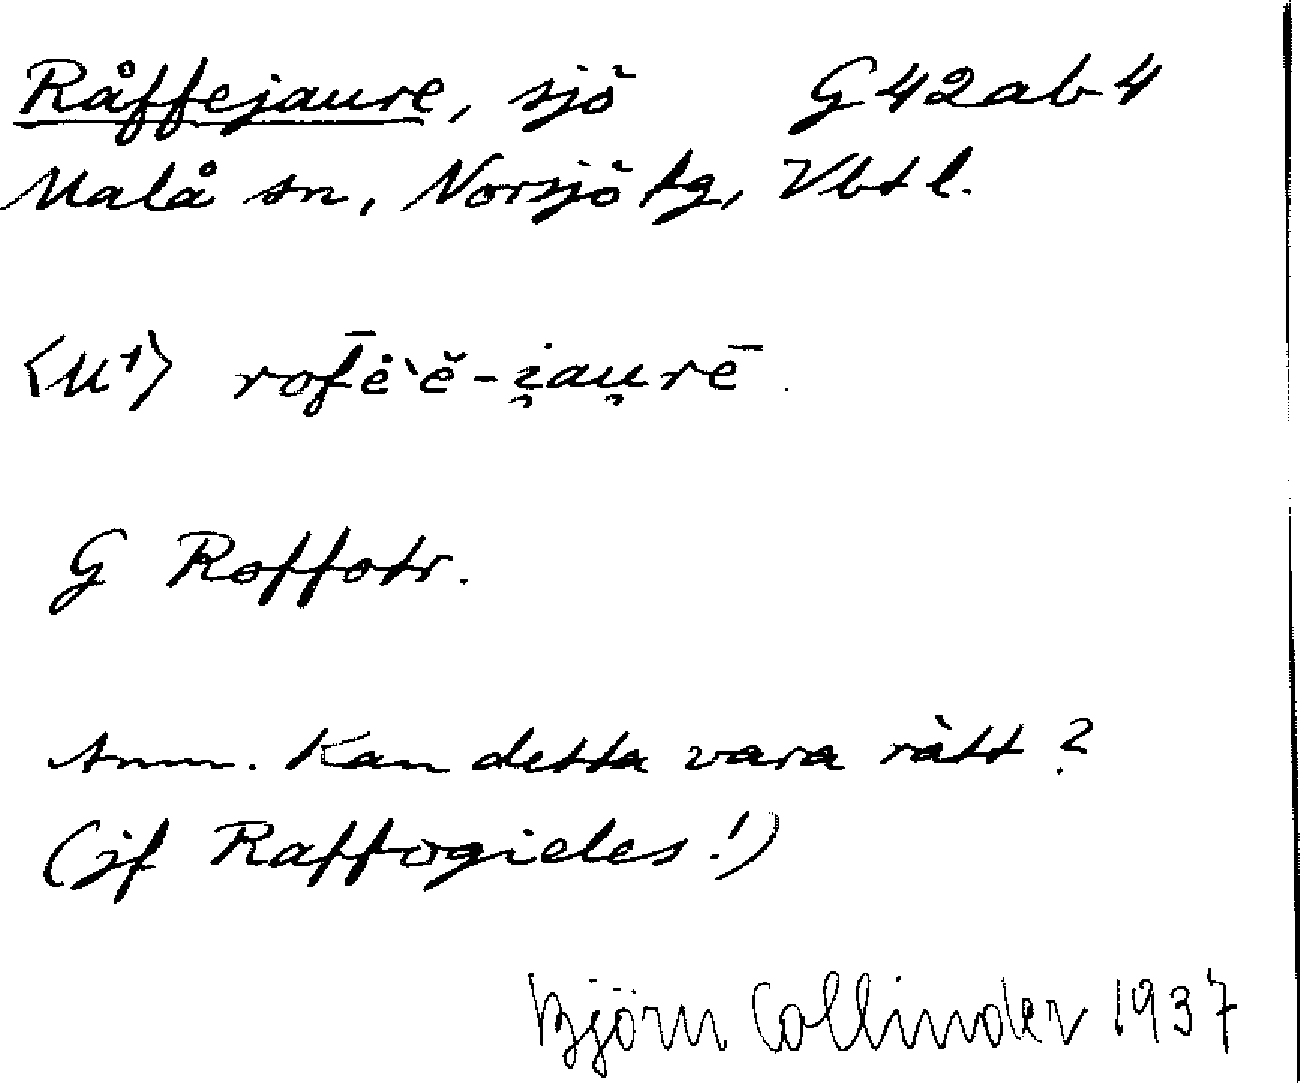 Råffejaure, sjö G 42ab4
Malå sn, Norsjö tg, Vbt l.
<U¹> rof̄ė̀ĕ-i̯au̯rē.
G Roffotr.
Anm. Kan detta vara rätt?
(jf Raffogieles!)
Björn Collinder 1937